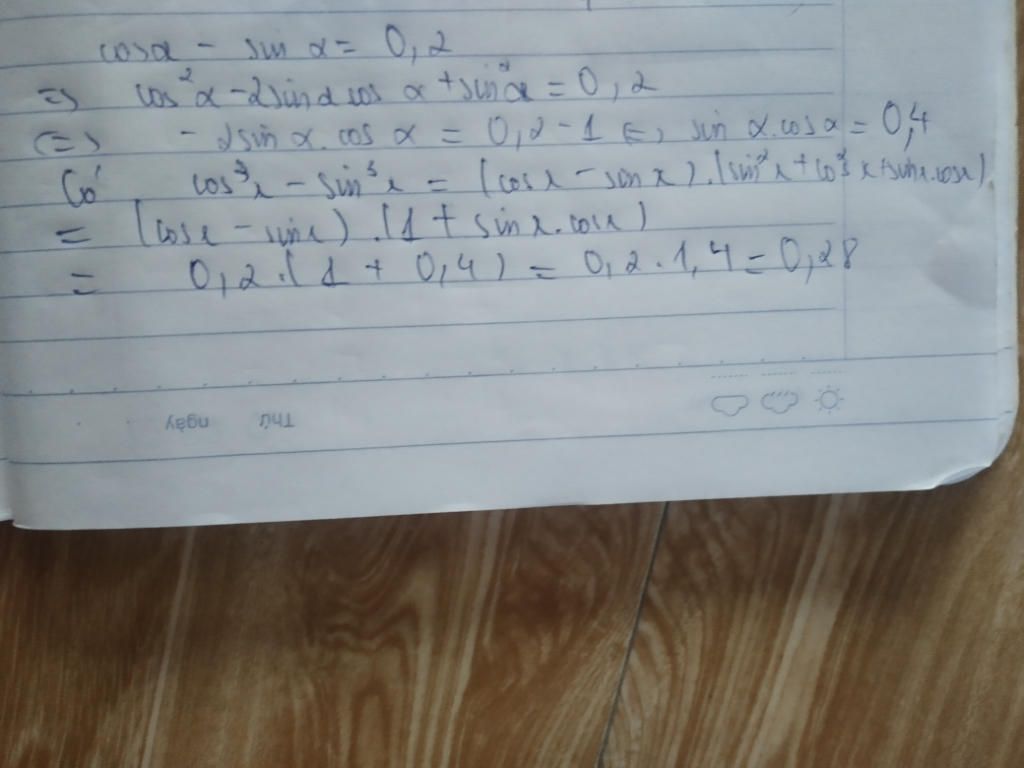 cosα - sin α = 0,2
=> cos²α - 2sinα cos α + sin²α = 0,2
<=> - 2sin α.cos α = 0,2 - 1 <=> sin α.cosα = 0,4
Có cos³x - sin³x = (cosx - sinx).(sin²x + cos²x + sinx.cosx)
= (cosx - sinx).(1 + sinx.cosx)
= 0,2.(1 + 0,4) = 0,2.1,4 = 0,28
Thứ ngày